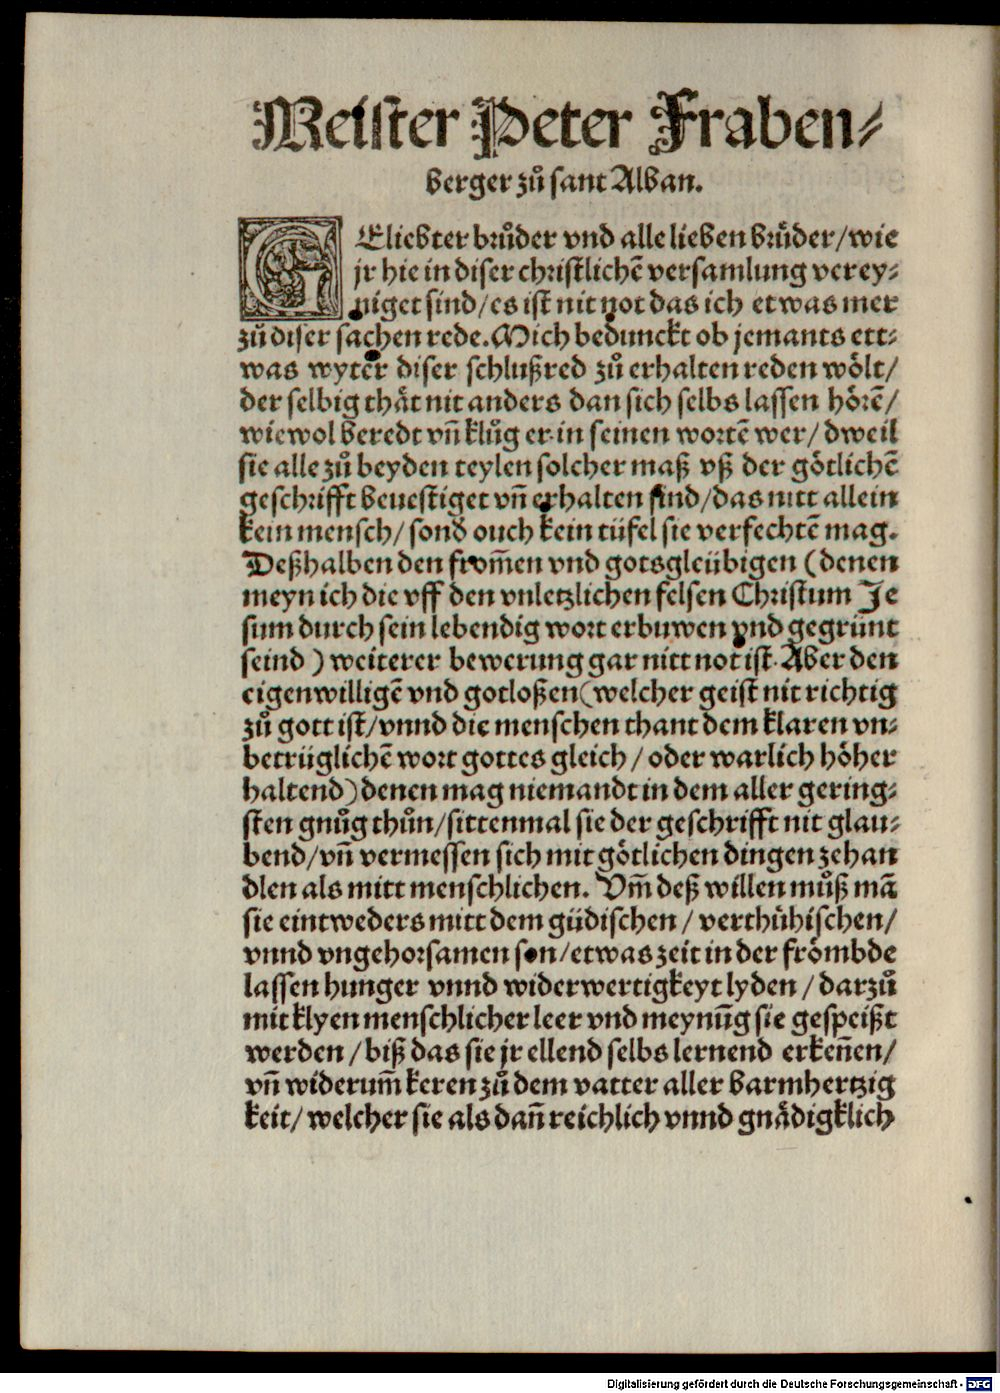 Meister Peter Fraben⸗
berger zů sant Alban.
GEliebster brůder vnd alle lieben brůder/wie
jr hie in diser christlichē versamlung verey⸗
niget sind/es ist nit not das ich etwas mer
zů diser sachen rede. Mich bedunckt ob jemants ett⸗
was wyter diser schlußred zů erhalten reden wölt/
der selbig thät nit anders dan sich selbs lassen hörē/
wiewol beredt vn̄ klůg er in seinen wortē wer/dweil
sie alle zů beyden teylen solcher maß vß der götlichē
geschrifft beuestiget vn̄ erhalten sind/das nitt allein
kein mensch/sond ouch kein tüfel sie verfechtē mag.
Deßhalben den from̄en vnd gotsgleübigen (denen
meyn ich die vff den vnletzlichen felsen Christum Je
sum durch sein lebendig wort erbuwen vnd gegrünt
seind) weiterer bewerung gar nitt not ist. Aber den
eigenwilligē vnd gotloßen(welcher geist nit richtig
zů gott ist/vnnd die menschen thant dem klaren vn⸗
betrüglichē wort gottes gleich/oder warlich höher
haltend)denen mag niemandt in dem aller gering⸗
sten gnůg thůn/sittenmal sie der geschrifft nit glau⸗
bend/vn̄ vermessen sich mit götlichen dingen zehan
dlen als mitt menschlichen. Vm̄ deß willen můß mā
sie eintweders mitt dem güdischen/verthühischen/
vnnd vngehorsamen son/etwas zeit in der frömbde
lassen hunger vnnd widerwertigkeyt lyden/darzů
mit klyen menschlicher leer vnd meynūg sie gespeißt
werden/biß das sie jr ellend selbs lernend erken̄en/
vn̄ widerum̄ keren zů dem vatter aller barmhertzig
keit/welcher sie als dan̄ reichlich vnnd gnädigklich
Digitalisierung gefördert durch die Deutsche Forschungsgemeinschaft - DFG